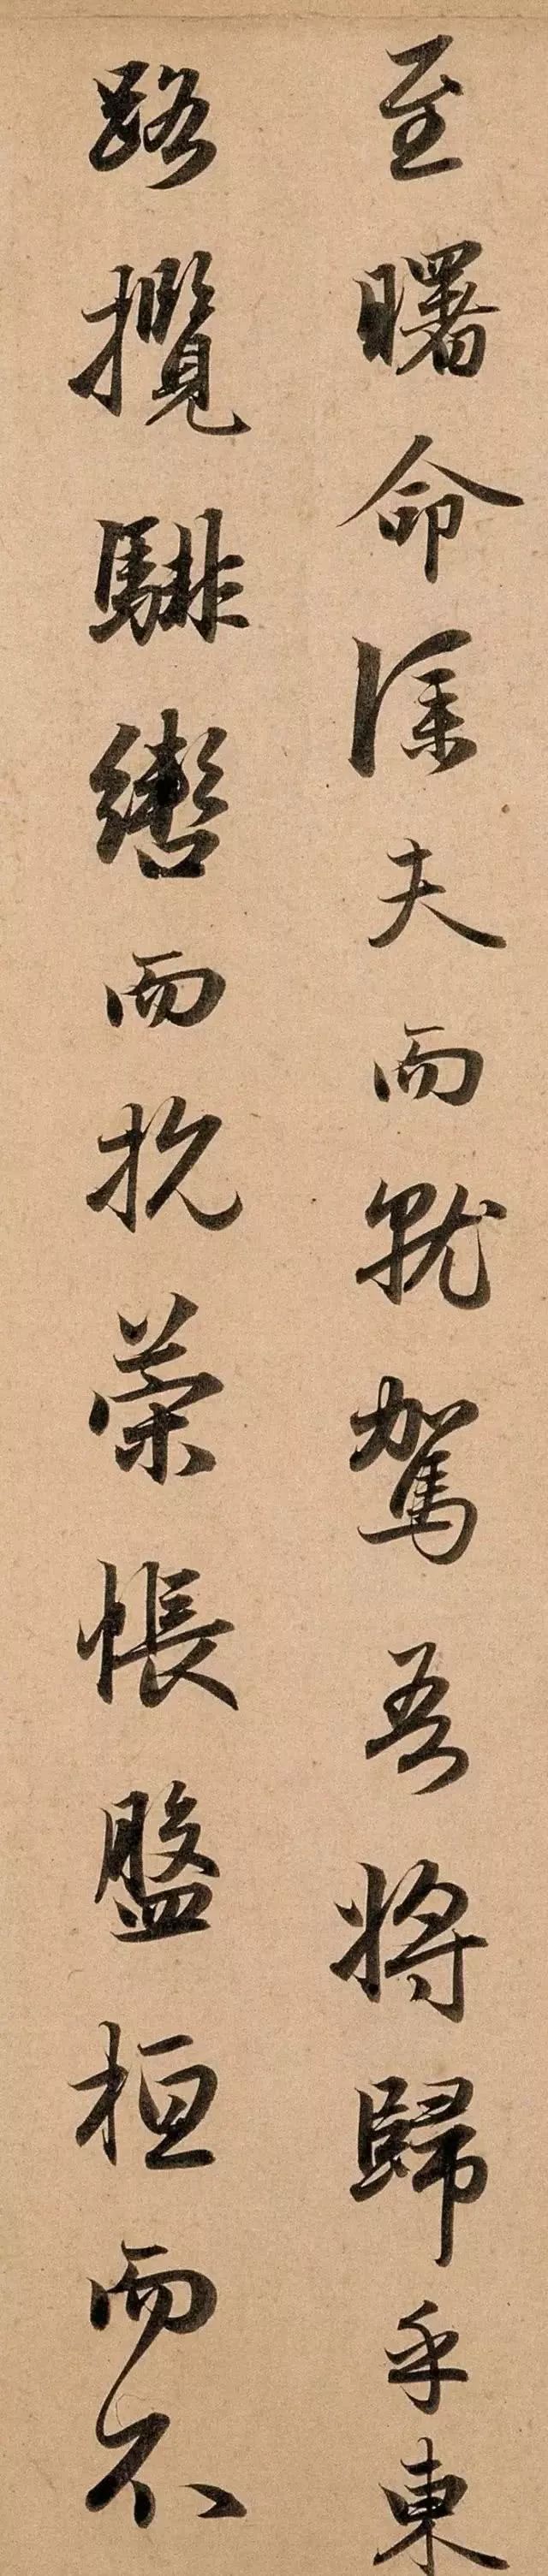 至曙命僕夫而就駕吾將歸乎東
路攬騑轡而抗策悵盤桓而不